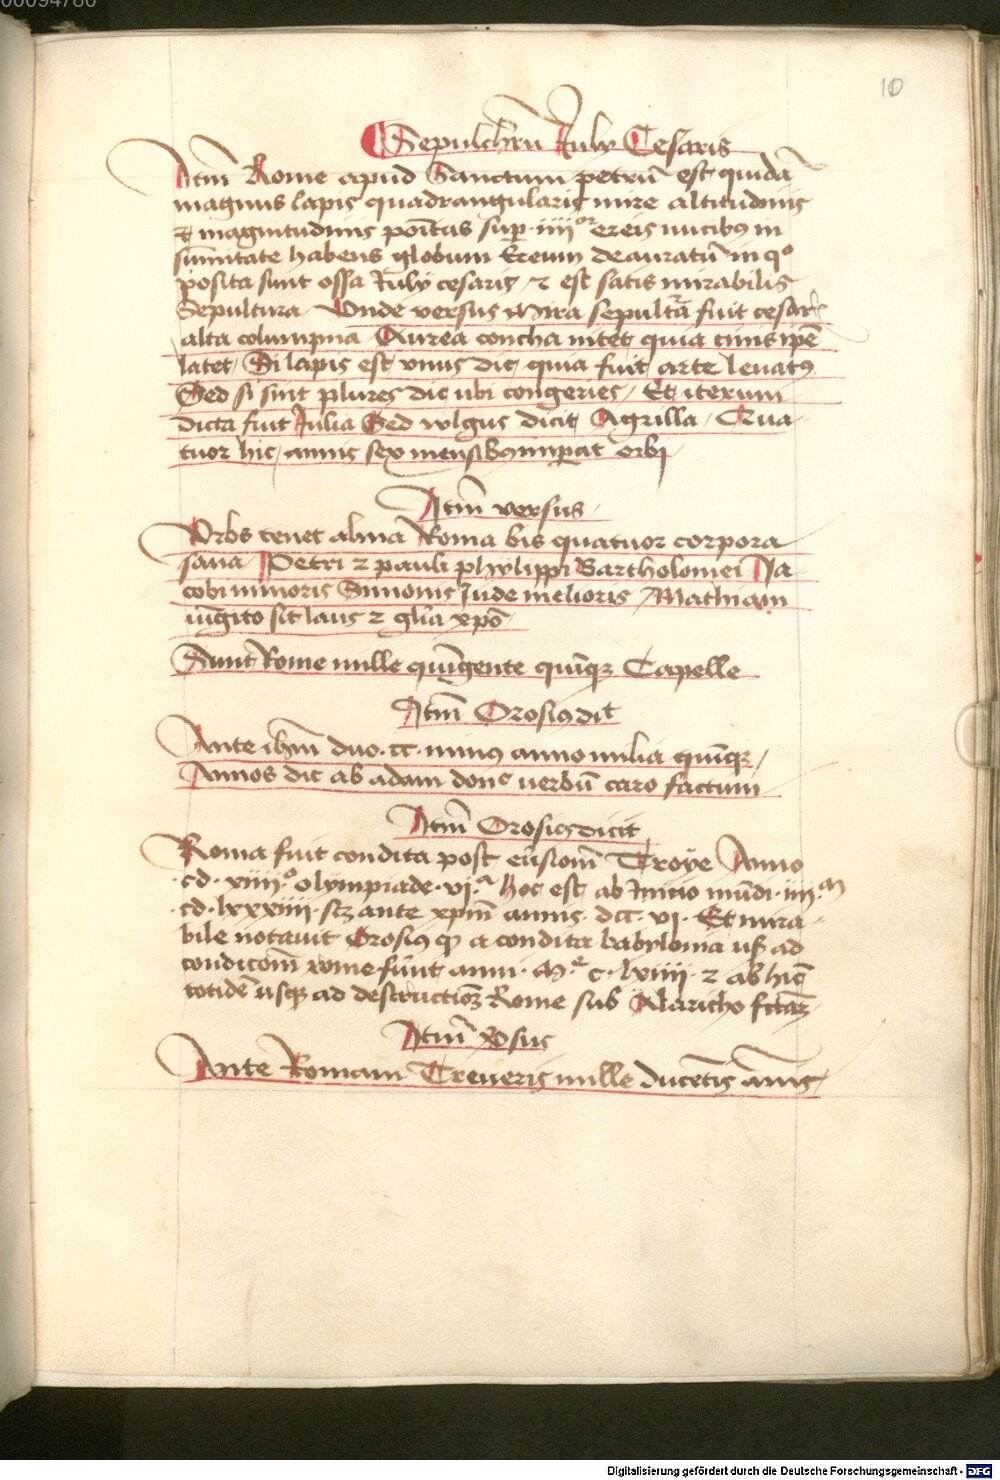 00094780
10
Sepulchrū July Cesaris
Itm̄ Rome apud Sanctum petrū est quidā
magnus lapis quadrangularis mire altitudinis
⁊ magnitudinis poītus sup iiii^or ereis nucibꝰ in
sum̄itate habens globum Ereum deauratū in qͦ
posita sunt ossa July cesaris / ⁊ est satis mirabilis
Sepultura. Unde versus Mira sepultā fuit cesar
alta columpnā Aurea concha nitet quia cinis ipē
latet / Si lapis est vnus dic quia fuit arte leuatꝰ
Sed si sint plures dic ubi congeries / Et iterum
Dicta fuit Julia Sed vulgus dicit Agrilla / Qua
tuor hic / annis sex mensibꝰ imp̄at orbi
Itm̄ versus
Vrbs tenet alma Roma bis quatuor corpora
sana Petri ⁊ pauli phylippi Bartholomei Ja
cobi minoris Simonis Jude melioris / Mathiam
iūgito sit laus ⁊ glīa xpō
Sunt Rome mille quīgente quīqꝫ Capelle
Itm̄ Orosiꝰ dit
Ante ihm̄ duo . cc . minꝰ anno milia quīqꝫ /
Annos dic ab adam donͨ uerbū caro factum
Itm̄ Orosiꝰ dicit
Roma fuit condita post eūsionē Troye Anno
. cd . xiiii . olympiade . vi . hoc est ab Inicio mūdi . iiii . m
. cd . lxxxiiii . scꝫ ante xpm̄ annis . dcc . vi . Et mira
bile notauit Orosiꝰ qꝫ a condita babylonia usqꝫ ad
condicōm̄ rome fūnt anni . M . c . lxiiii . ⁊ ab hic
totidē usqꝫ ad destructioꝫ Rome sub Alaricho fctaꝫ
Itm̄ v̄sus
Ante Romam Treueris mille ducētis annis /
Digitalisierung gefördert durch die Deutsche Forschungsgemeinschaft - DFG